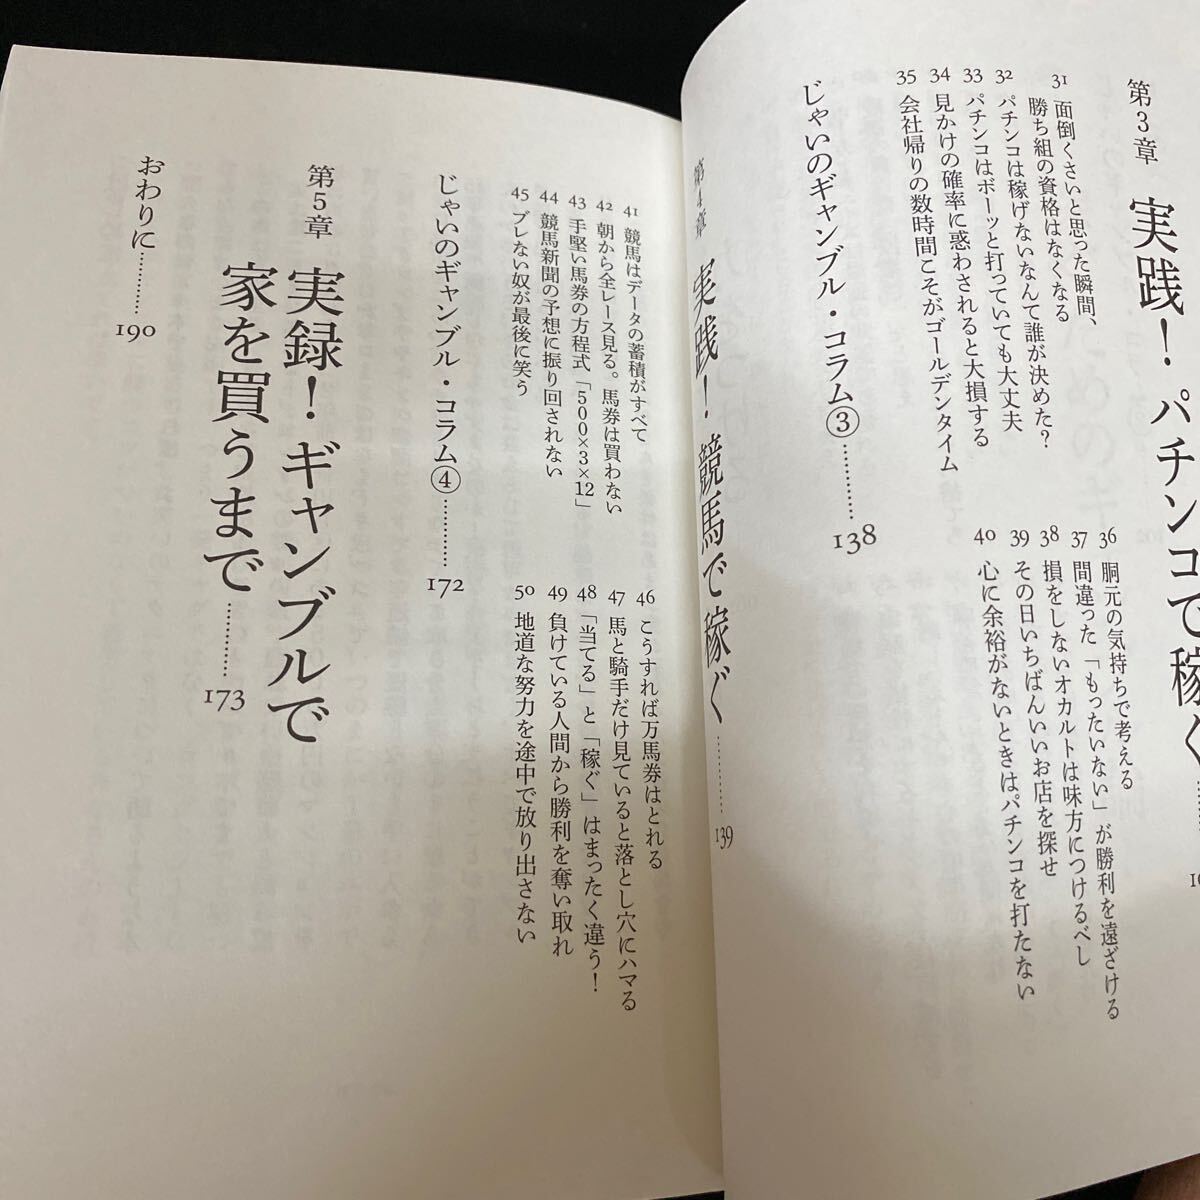 第3章 実践！パチンコで稼ぐ
31 面倒くさいと思った瞬間、
勝ち組の資格はなくなる
32 パチンコは稼げないなんて誰が決めた？
33 パチンコはボーッと打っていても大丈夫
34 見かけの確率に惑わされると大損する
35 会社帰りの数時間こそがゴールデンタイム
36 胴元の気持ちで考える
37 間違った「もったいない」が勝利を遠ざける
38 損をしないオカルトは味方につけるべし
39 その日いちばんいいお店を探せ
40 心に余裕がないときはパチンコを打たない
じゃいのギャンブル・コラム③…………138
第4章 実践！競馬で稼ぐ…………139
41 競馬はデータの蓄積がすべて
42 朝から全レース見る。馬券は買わない
43 手堅い馬券の方程式「500×3×12」
44 競馬新聞の予想に振り回されない
45 ブレない奴が最後に笑う
46 こうすれば万馬券はとれる
47 馬と騎手だけ見ていると落とし穴にハマる
48 「当てる」と「稼ぐ」はまったく違う！
49 負けている人間から勝利を奪い取れ
50 地道な努力を途中で放り出さない
じゃいのギャンブル・コラム④…………172
第5章 実録！ギャンブルで
家を買うまで…………173
おわりに…………190